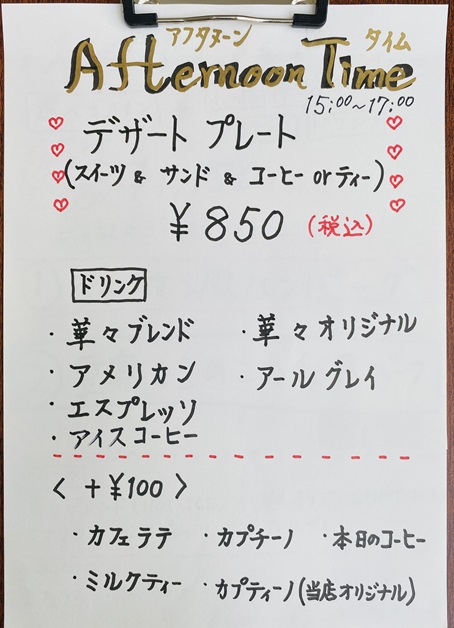 アフタヌーン タイム
Afternoon Time
15:00~17:00
デザート プレート
(スイーツ & サンド & コーヒー or ティー)
¥850 (税込)
ドリンク
・華々ブレンド ・華々オリジナル
・アメリカン ・アールグレイ
・エスプレッソ
・アイスコーヒー
< +¥100 >
・カフェラテ ・カプチーノ ・本日のコーヒー
・ミルクティー ・カプティーノ(当店オリジナル)